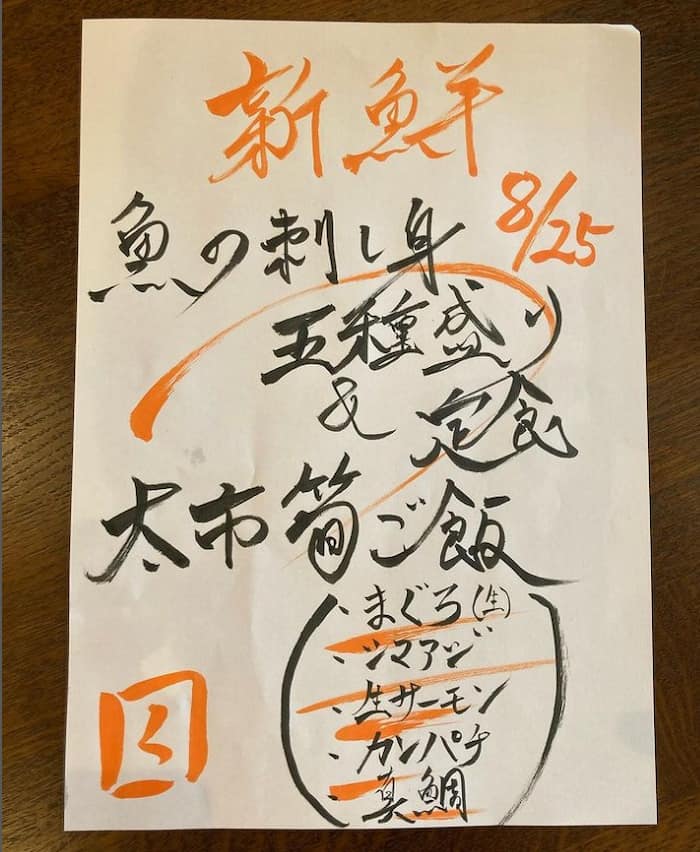 新鮮
8/25
魚の刺し身
五種盛り
& 定食
太市筍ご飯
・まぐろ(生)
・シマアジ
・生サーモン
・カンパチ
・真鯛